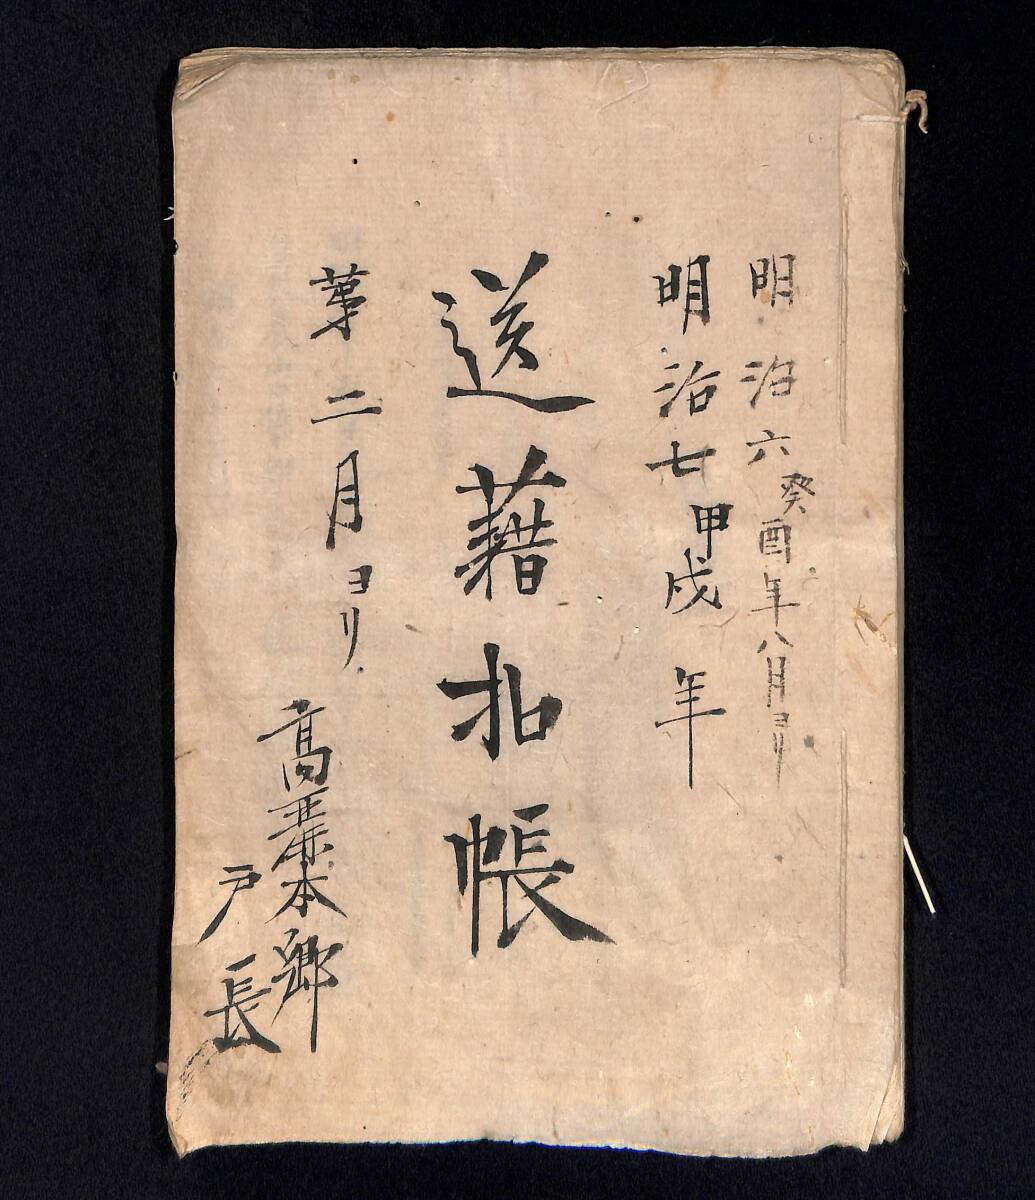 明治六癸酉年八月ヨリ
明治七甲戌年
送藉扣帳
第二月ヨリ
高 本郷
戸長